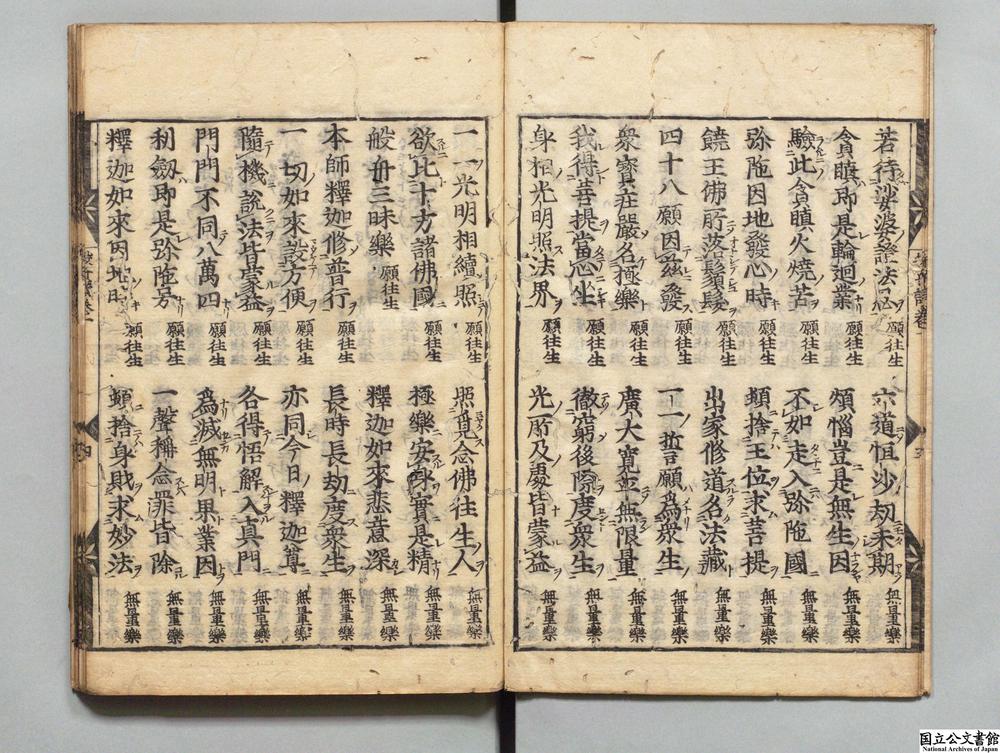 若待娑婆證法忍 願往生 六道恒沙劫未期 無量樂
貪瞋即是輪迴業 願往生 煩惱豈是無生因 無量樂
驗此貪瞋火燒苦 願往生 不如走入弥陁國 無量樂
弥陁因地發心時 願往生 頓捨王位求菩提 無量樂
饒王佛所落鬚髮 願往生 出家修道名法藏 無量樂
四十八願因茲發 願往生 一一誓願爲衆生 無量樂
衆寳莊嚴名極樂 願往生 廣大寛平無限量 無量樂
我得菩提當心坐 願往生 徹窮後際度衆生 無量樂
身相光明照法界 願往生 光所及處皆蒙益 無量樂
一一光明相續照 願往生 照覓念佛往生人 無量樂
欲比十方諸佛國 願往生 極樂安身實是精 無量樂
般舟三昧樂 願往生 釋迦如來悲意深 無量樂
本師釋迦修普行 願往生 長時長劫度衆生 無量樂
一切如來設方便 願往生 亦同今日釋迦尊 無量樂
隨機說法皆蒙益 願往生 各得悟解入真門 無量樂
門門不同八萬四 願往生 爲滅無明果業因 無量樂
利劔即是弥陁号 願往生 一聲稱念罪皆除 無量樂
釋迦如來因地時 願往生 頓捨身財求妙法 無量樂
国立公文書館
National Archives of Japan